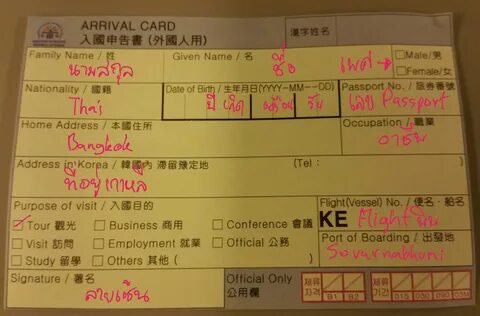 ARRIVAL CARD
入國申告書 (外國人用)
漢字姓名
Family Name / 姓 Given Name / 名 □Male/男
นามสกุล ชื่อ เพศ → □Female/女
Nationality / 國籍 Date of Birth / 生年月日(YYYY-MM-DD) Passport No. / 旅券番號
Thai ปี เกิด เดือน วัน เลข Passport
Home Address / 本國住所 Occupation / 職業
Bangkok อาชีพ
Address in Korea / 韓國內 滯留豫定地 (Tel : )
ที่อยู่เกาหลี
Purpose of visit / 入國目的 Flight(Vessel) No. / 便名·船名
☑Tour 觀光 □Business 商用 □Conference 會議 KE Flight บิน
□Visit 訪問 □Employment 就業 □Official 公務 Port of Boarding / 出發地
□Study 留學 □Others 其他 ( ) Suvarnabhumi
Signature / 署名 Official Only 체류 자격 B1 B2 체류 기간 015 030 090
ลายเซ็น 公用欄